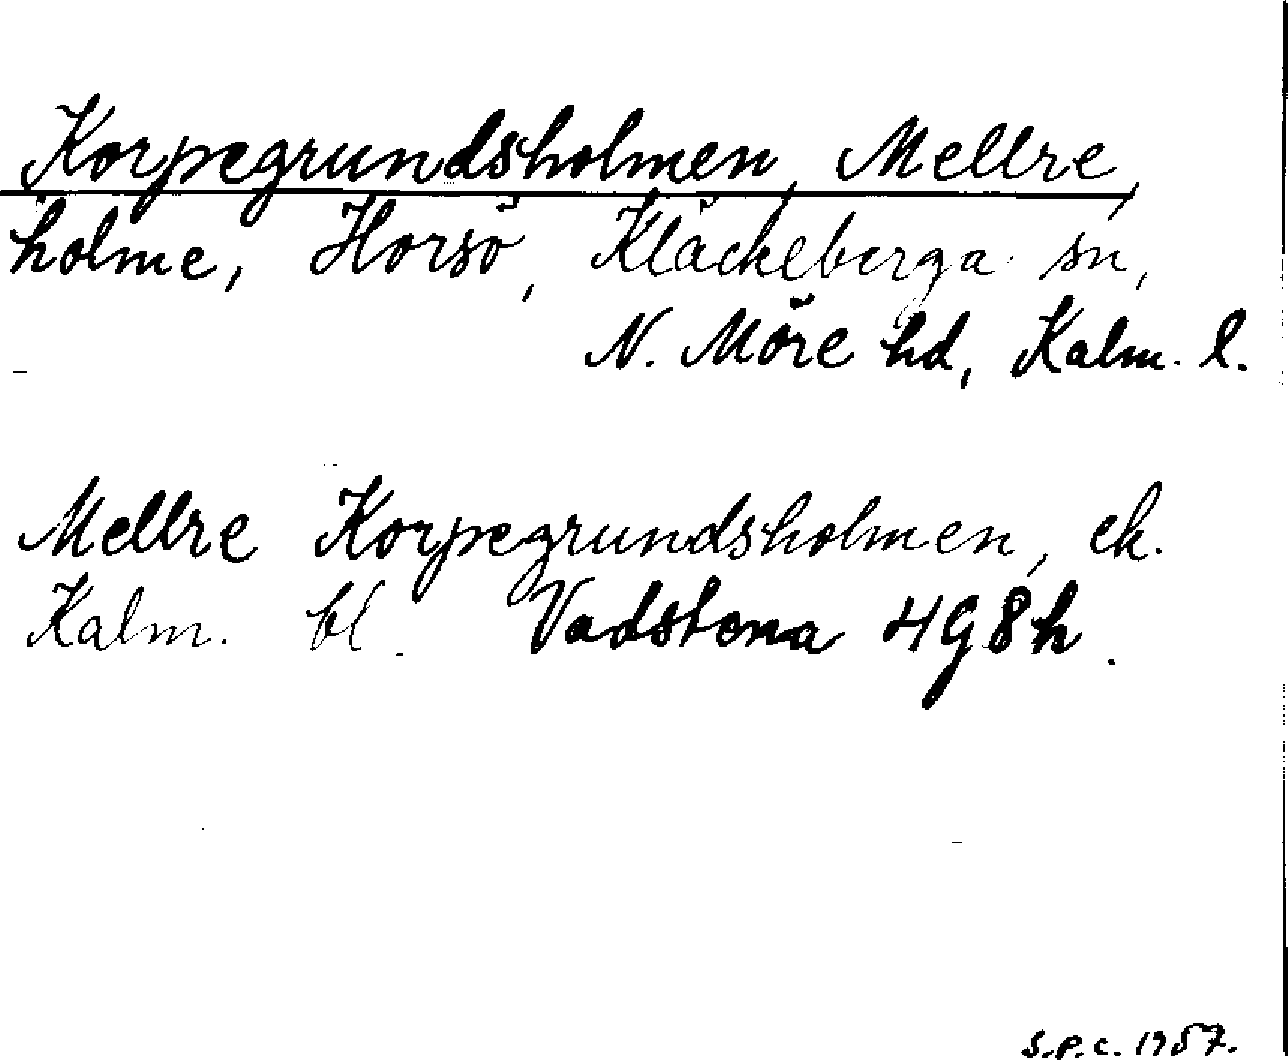 Korpegrundsholmen, Mellre,
holme, Horsö, Kläckeberga sn,
N. Möre hd, Kalm. l.
Mellre Korpegrundsholmen, ek.
Kalm. bl. Vadstena 4G8h.
S.P.C. 1957.